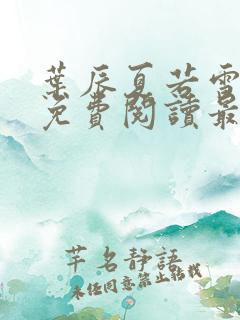 葉辰夏若雪
免費閱讀最
芊名靜語
未經同意禁止轉載